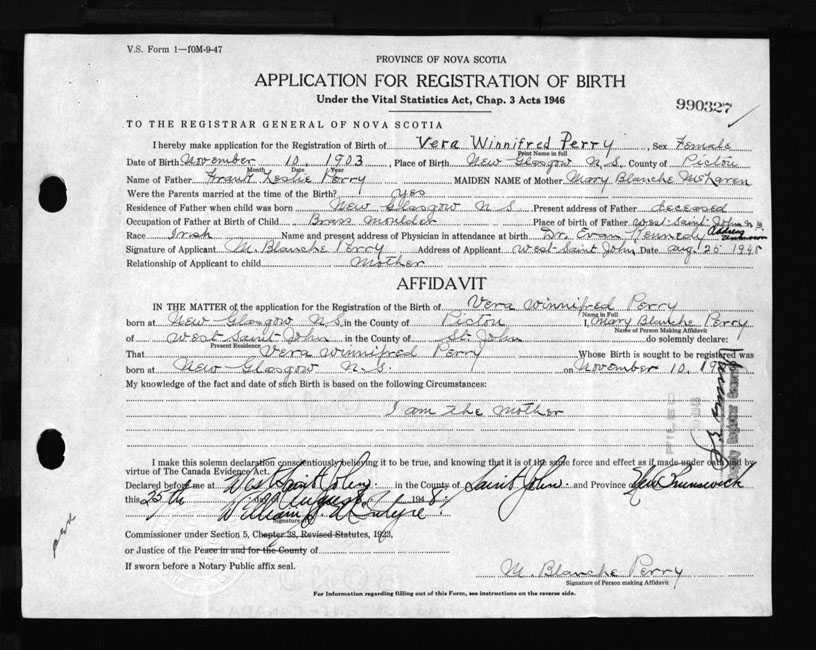 V.S. Form 1—10M-9-47
PROVINCE OF NOVA SCOTIA
APPLICATION FOR REGISTRATION OF BIRTH
Under the Vital Statistics Act, Chap. 3 Acts 1946
990327
TO THE REGISTRAR GENERAL OF NOVA SCOTIA
I hereby make application for the Registration of Birth of Vera Winnifred Perry, Sex Female
Print Name in full
Date of Birth November 10, 1903, Place of Birth New Glasgow N.S., County of Pictou
Month Date Year
Name of Father Frank Leslie Perry MAIDEN NAME of Mother Mary Blanche McLaren
Were the Parents married at the time of the Birth? yes
Residence of Father when child was born New Glasgow N S Present address of Father deceased
Occupation of Father at Birth of Child Brass Moulder Place of birth of Father West Saint John N.B.
Race Irish Name and present address of Physician in attendance at birth Dr. Evan Kennedy Address unknown
Signature of Applicant M. Blanche Perry Address of Applicant West-Saint John, Date Aug. 25 1948
Relationship of Applicant to child Mother
AFFIDAVIT
IN THE MATTER of the application for the Registration of the Birth of Vera Winnifred Perry
Name in Full
born at New Glasgow N S, in the County of Pictou I, Mary Blanche Perry
Name of Person Making Affidavit
of West Saint John in the County of St. John do solemnly declare:
Present Residence
That Vera Winnifred Perry Whose Birth is sought to be registered was
born at New Glasgow N.S. on November 10, 19
My knowledge of the fact and date of such Birth is based on the following Circumstances:
I am the Mother
I make this solemn declaration conscientiously believing it to be true, and knowing that it is of the same force and effect as if made under oath and by
virtue of The Canada Evidence Act.
Declared before me at West Saint John in the County of Saint John and Province of New Brunswick
this 25th day of August 1948.
William McIntyre
Signature
Commissioner under Section 5, Chapter 38, Revised Statutes, 1923,
or Justice of the Peace in and for the County of
If sworn before a Notary Public affix seal.
M. Blanche Perry
Signature of Person making Affidavit
For Information regarding filling out of this Form, see instructions on the reverse side.
Deputy Registrar General